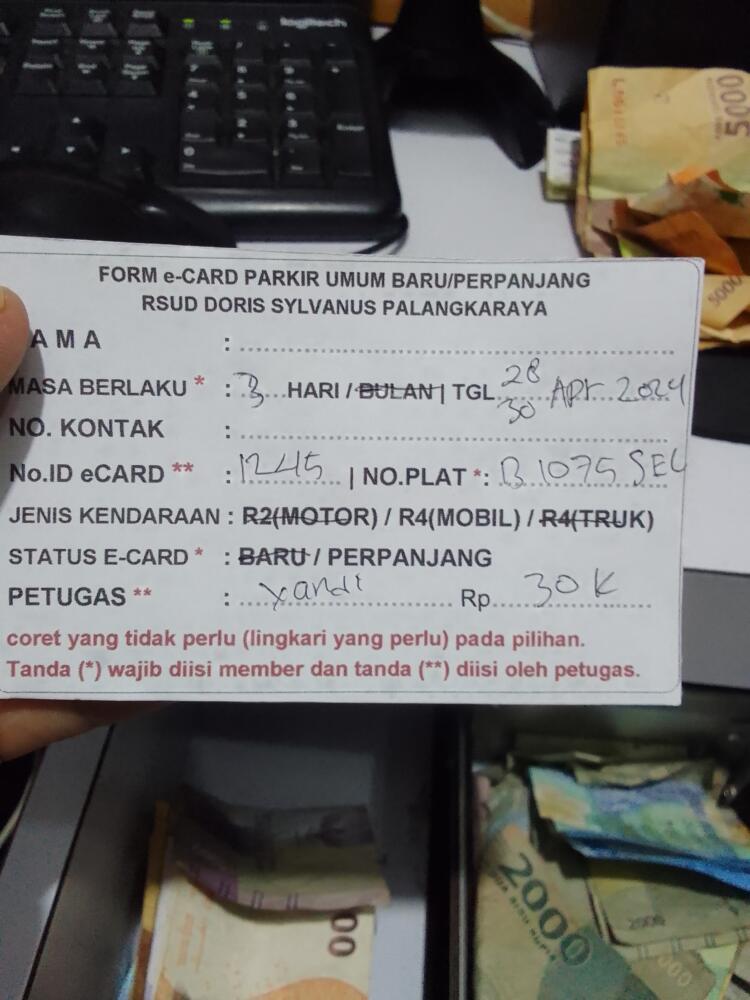 logitech
5000
5000
FORM e-CARD PARKIR UMUM BARU/PERPANJANG
RSUD DORIS SYLVANUS PALANGKARAYA
AMA :
MASA BERLAKU * : 3 HARI / BULAN | TGL 28 30 Apr 2024
NO. KONTAK :
No.ID eCARD ** : 1245 | NO.PLAT *: B 1075 SEL
JENIS KENDARAAN : R2(MOTOR) / R4(MOBIL) / R4(TRUK)
STATUS E-CARD * : BARU / PERPANJANG
PETUGAS ** : Yandi Rp 30K
coret yang tidak perlu (lingkari yang perlu) pada pilihan.
Tanda (*) wajib diisi member dan tanda (**) diisi oleh petugas.
2000
2000
00
000